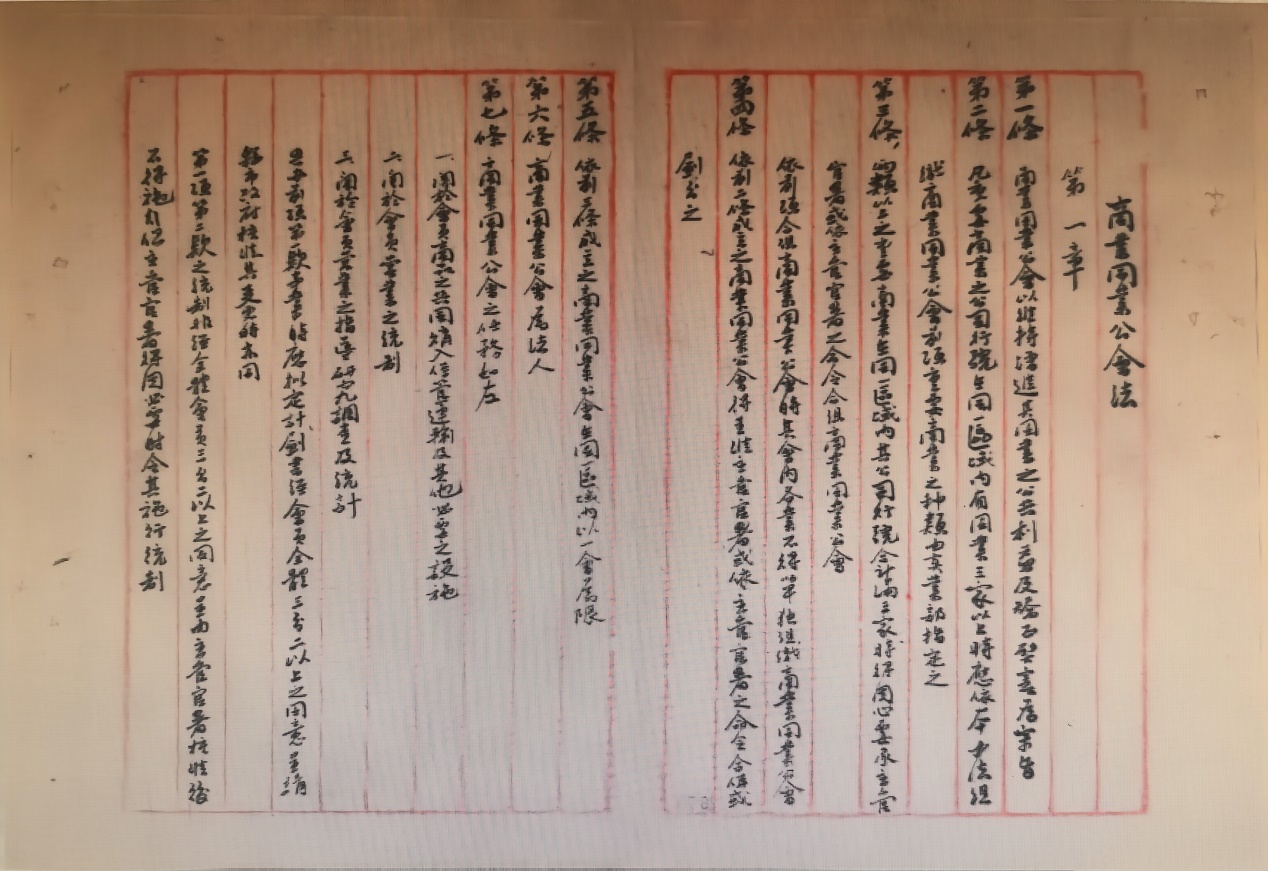 商業同業公會法
第一章
第一條 商業同業公會以維持增進其同業之公共利益及矯正弊害為宗旨
第二條 凡重要商業之公司行號在同一區域內有同業三家以上時應依本法組
織商業同業公會前項重要商業之種類由實業部指定之
第三條 兩類以上之重要商業在同一區域內其公司行號合計滿三家時得因必要承主管
官署或依主管官署之命令合組商業同業公會
依前項合組商業同業公會時其會內各業不得以單獨組織商業同業公會
第四條 依前二條成立之商業同業公會得呈准主管官署或依主管官署之命令合併或
劃分之
第五條 依前三條成立之商業同業公會在同一區域內以一會為限
第六條 商業同業公會為法人
第七條 商業同業公會之任務如左
一、關於會員商品之共同購入保管運輸及其他必要之設施
二、關於會員營業之統制
三、關於會員營業之指導研究調查及統計
且辦前項第一款事業時應擬定計劃書經會員全體三分二以上之同意呈請
縣市政府核准其變更時亦同
第一項第二款之統制非經全體會員三分二以上之同意呈由主管官署核准後
不得施行但主管官署得因必要時令其施行統制